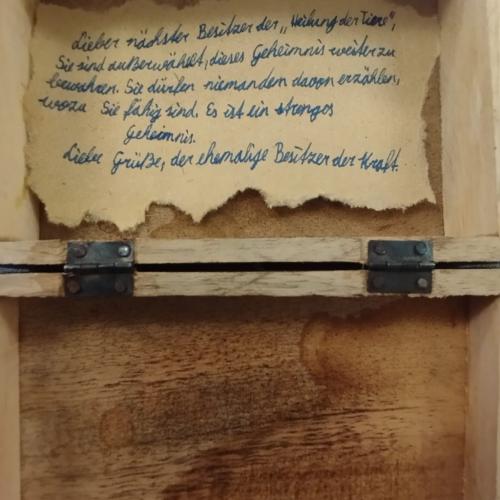 Lieber nächster Besitzer der „Heilung der Tiere",
Sie sind außerwählt, dieses Geheimnis weiter zu
bewahren. Sie dürfen niemandem davon erzählen,
wozu Sie fähig sind. Es ist ein strenges
Geheimnis.
Liebe Grüße, der ehemalige Besitzer der Kraft.